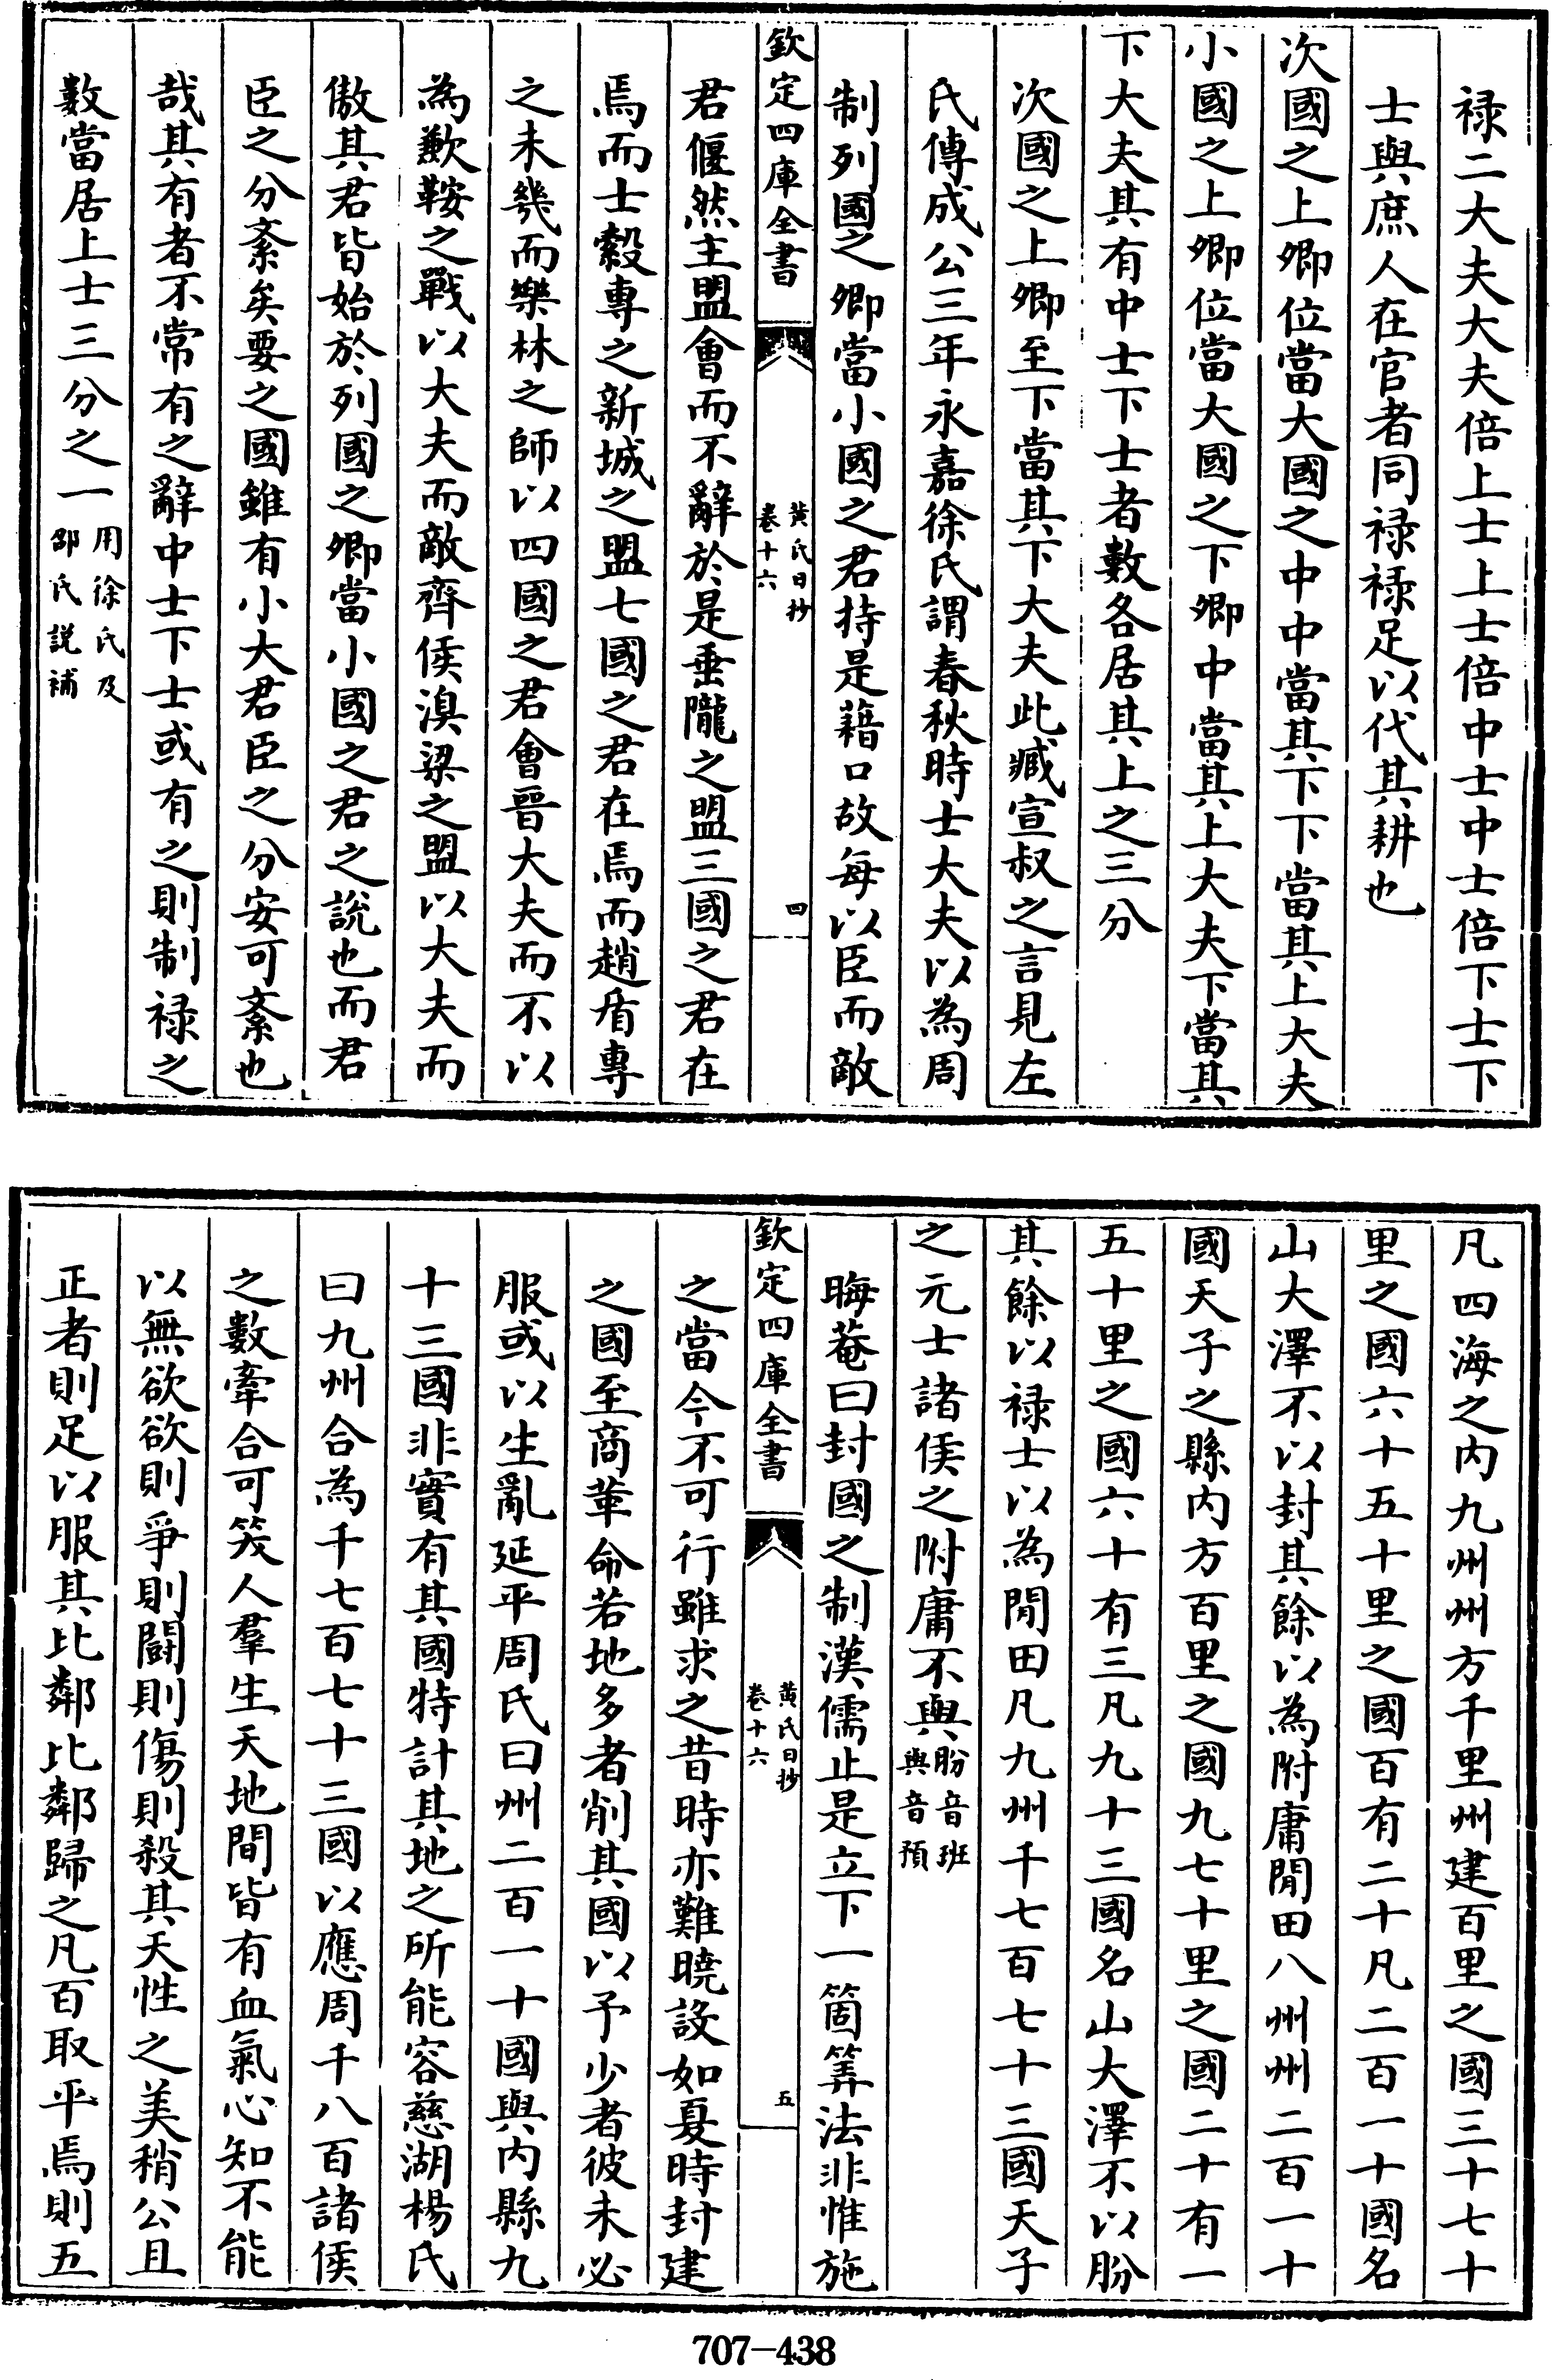 禄二大夫大夫倍上士上士倍中士中士倍下士下
士與庶人在官者同禄禄足以代其耕也
次國之上卿位當大國之中中當其下下當其上大夫
小國之上卿位當大國之下卿中當其上大夫下當其
下大夫其有中士下士者數各居其上之三分
次國之上卿至下當其下大夫此臧宣叔之言見左
氏傳成公三年永嘉徐氏謂春秋時士大夫以為周
制列國之卿當小國之君持是藉口故每以臣而敵
欽定四庫全書
黄氏日抄
卷十六
四
君偃然主盟會而不辭於是垂隴之盟三國之君在
焉而士縠專之新城之盟七國之君在焉而趙盾專
之未幾而樂林之師以四國之君會晉大夫而不以
為歉鞍之戰以大夫而敵齊侯溴梁之盟以大夫而
傲其君皆始於列國之卿當小國之君之說也而君
臣之分紊矣要之國雖有小大君臣之分安可紊也
哉其有者不常有之辭中士下士或有之則制禄之
數當居上士三分之一
用徐氏及
邵氏說補
凡四海之内九州州方千里州建百里之國三十七十
里之國六十五十里之國百有二十凡二百一十國名
山大澤不以封其餘以為附庸閒田八州州二百一十
國天子之縣内方百里之國九七十里之國二十有一
五十里之國六十有三凡九十三國名山大澤不以朌
其餘以禄士以為閒田凡九州千七百七十三國天子
之元士諸侯之附庸不與
朌音班
與音預
晦菴曰封國之制漢儒止是立下一箇筭法非惟施
欽定四庫全書
黄氏日抄
卷十六
五
之當今不可行雖求之昔時亦難曉設如夏時封建
之國至商革命若地多者削其國以予少者彼未必
服或以生亂延平周氏曰州二百一十國與内縣九
十三國非實有其國特計其地之所能容慈湖楊氏
曰九州合為千七百七十三國以應周千八百諸侯
之數牽合可笑人羣生天地間皆有血氣心知不能
以無欲欲則爭則鬭則傷則殺其天性之美稍公且
正者則足以服其比鄰比鄰歸之凡百取平焉則五
707-438